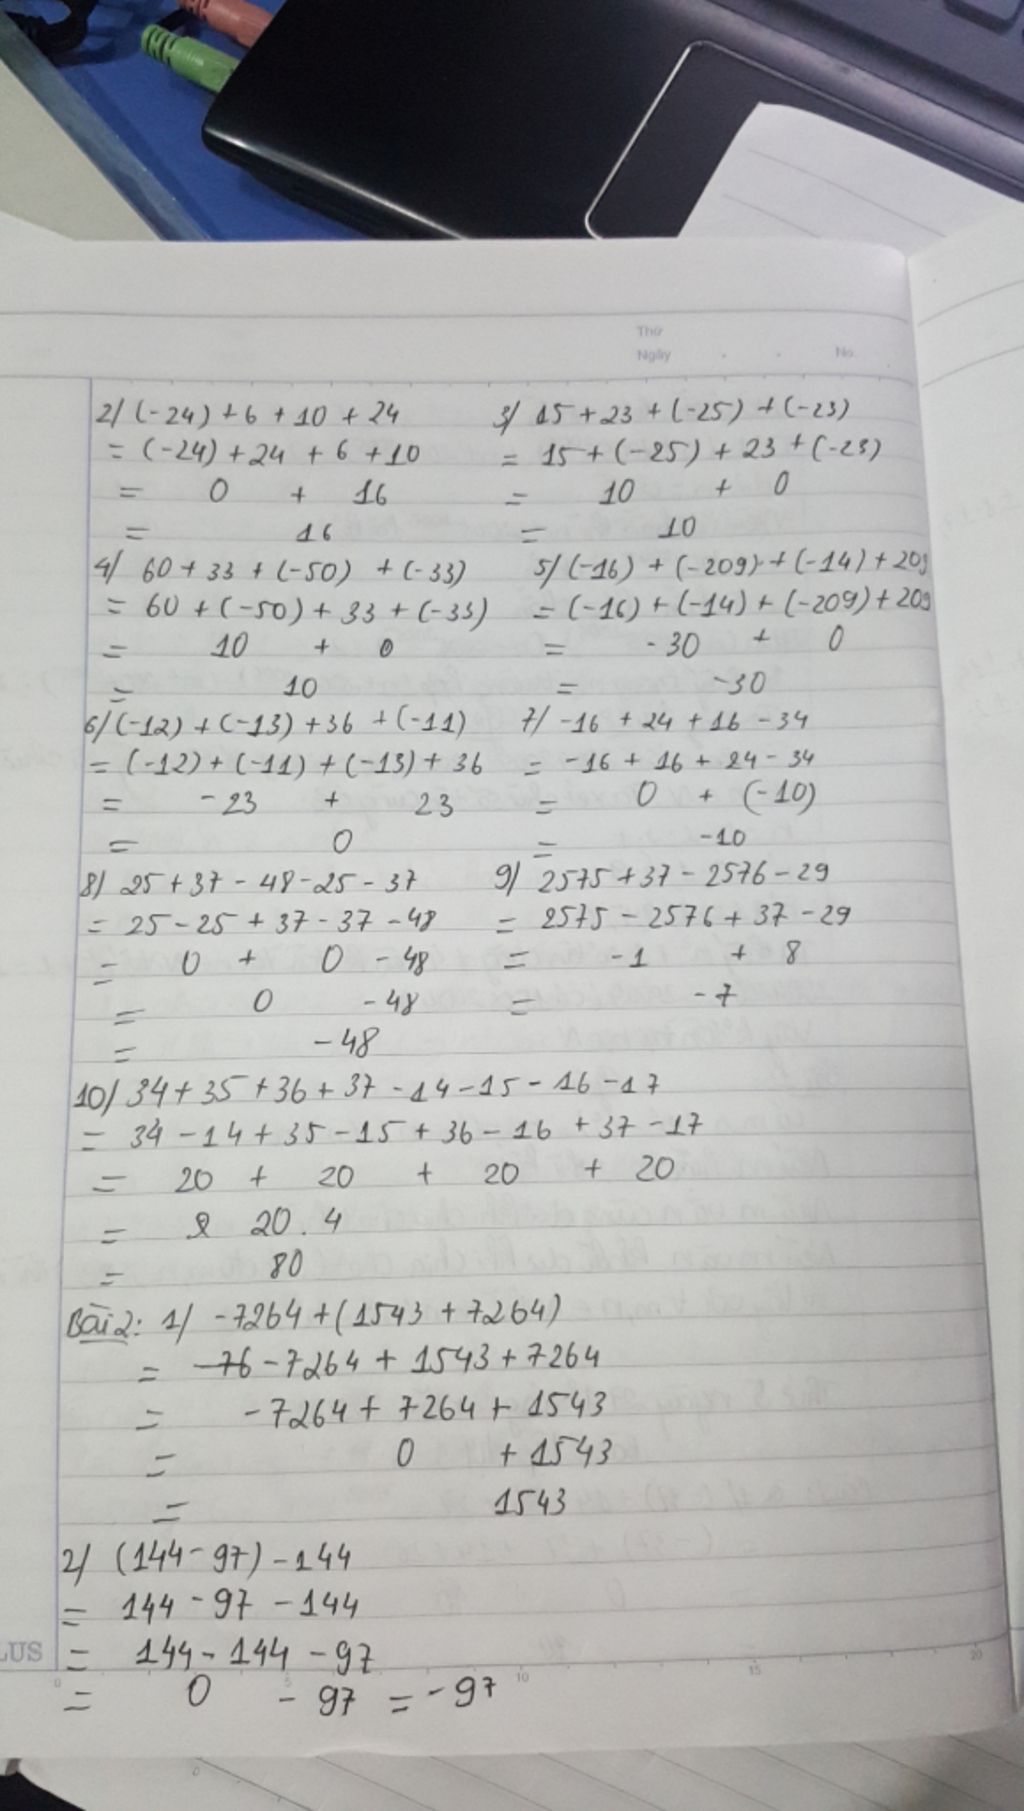 Thứ
Ngày . . No.
2/ (-24) + 6 + 10 + 24
= (-24) + 24 + 6 + 10
= 0 + 16
= 16
3/ 15 + 23 + (-25) + (-23)
= 15 + (-25) + 23 + (-23)
= 10 + 0
= 10
4/ 60 + 33 + (-50) + (-33)
= 60 + (-50) + 33 + (-33)
= 10 + 0
= 10
5/ (-16) + (-209) + (-14) + 209
= (-16) + (-14) + (-209) + 209
= -30 + 0
= -30
6/ (-12) + (-13) + 36 + (-11)
= (-12) + (-11) + (-13) + 36
= -23 + 23
= 0
7/ -16 + 24 + 16 - 34
= -16 + 16 + 24 - 34
= 0 + (-10)
= -10
8/ 25 + 37 - 48 - 25 - 37
= 25 - 25 + 37 - 37 - 48
= 0 + 0 - 48
= 0 - 48
= -48
9/ 2575 + 37 - 2576 - 29
= 2575 - 2576 + 37 - 29
= -1 + 8
= -7
10/ 34 + 35 + 36 + 37 - 14 - 15 - 16 - 17
= 34 - 14 + 35 - 15 + 36 - 16 + 37 - 17
= 20 + 20 + 20 + 20
= 20 . 4
= 80
Bài 2: 1/ -7264 + (1543 + 7264)
= -76 -7264 + 1543 + 7264
= -7264 + 7264 + 1543
= 0 + 1543
= 1543
2/ (144 - 97) - 144
= 144 - 97 - 144
= 144 - 144 - 97
= 0 - 97 = -97
LUS
0 5 10 15 20